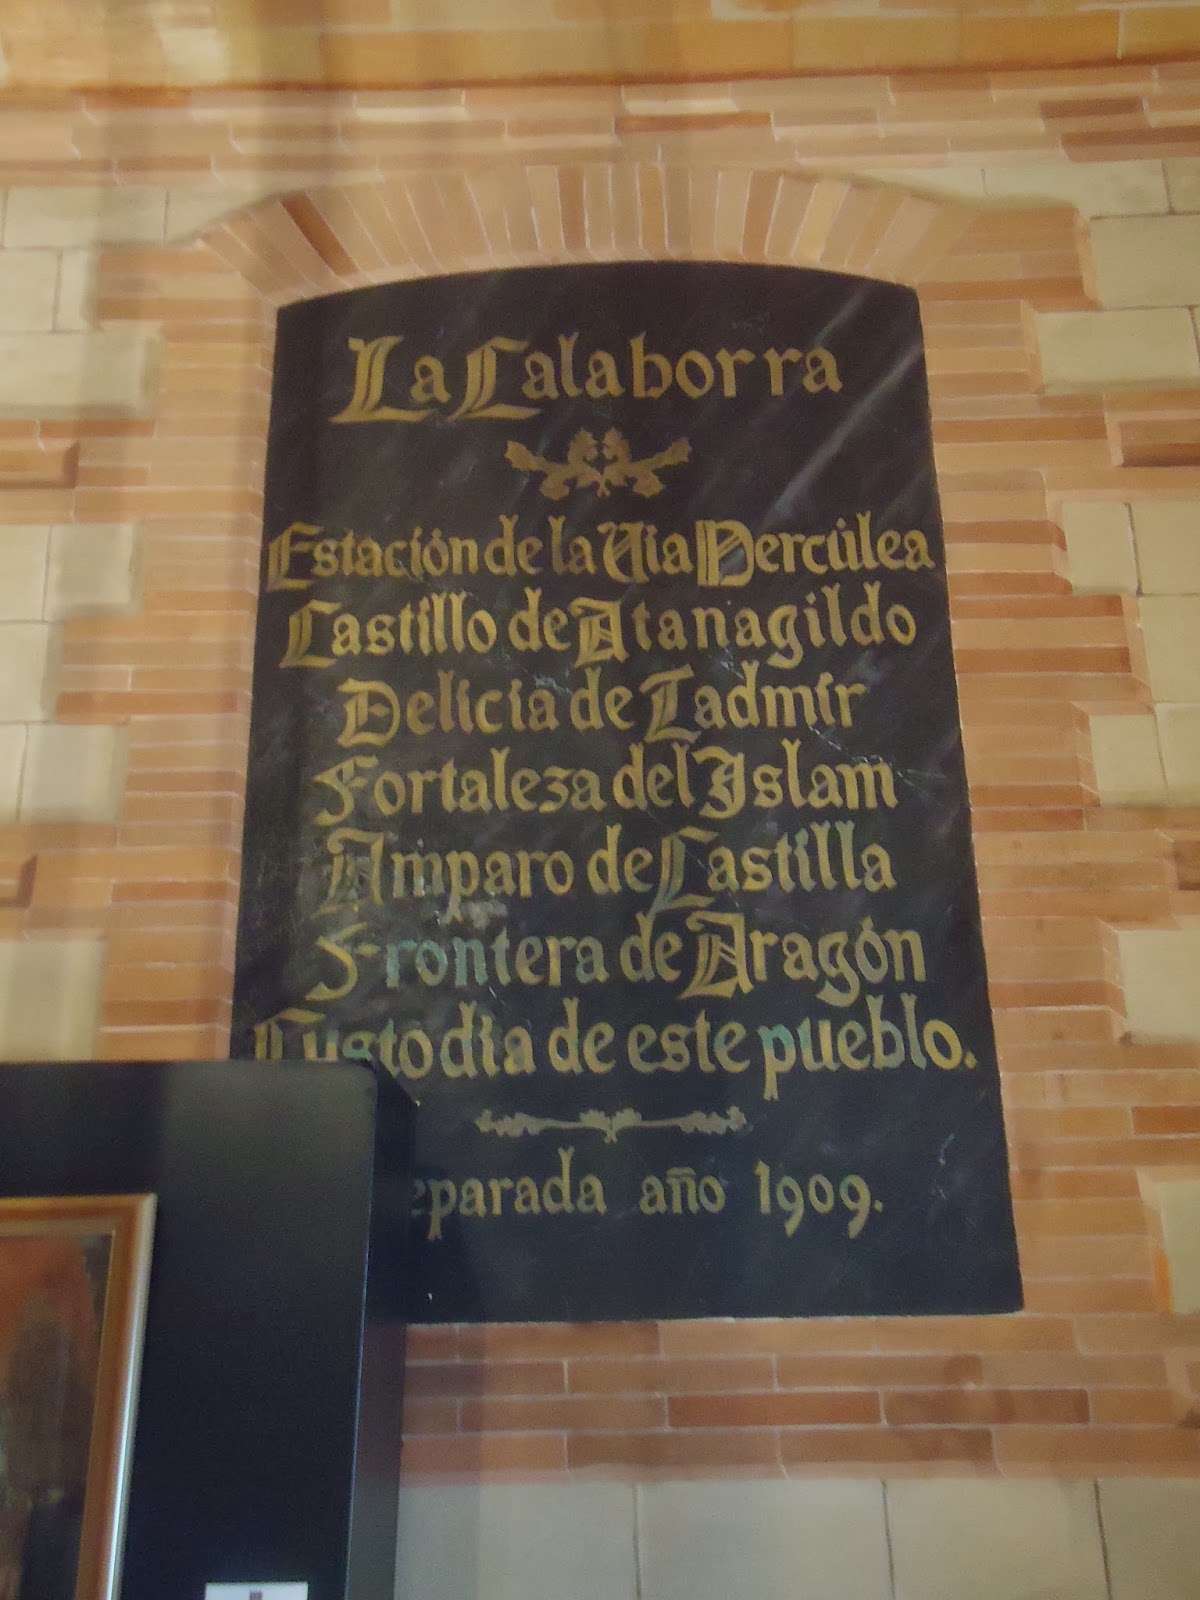 La Calahorra
Estación de la Via Hercúlea
Castillo de Atanagildo
Delicia de Tadmír
Fortaleza del Islam
Amparo de Castilla
Frontera de Aragón
Custodia de este pueblo.
eparada año 1909.